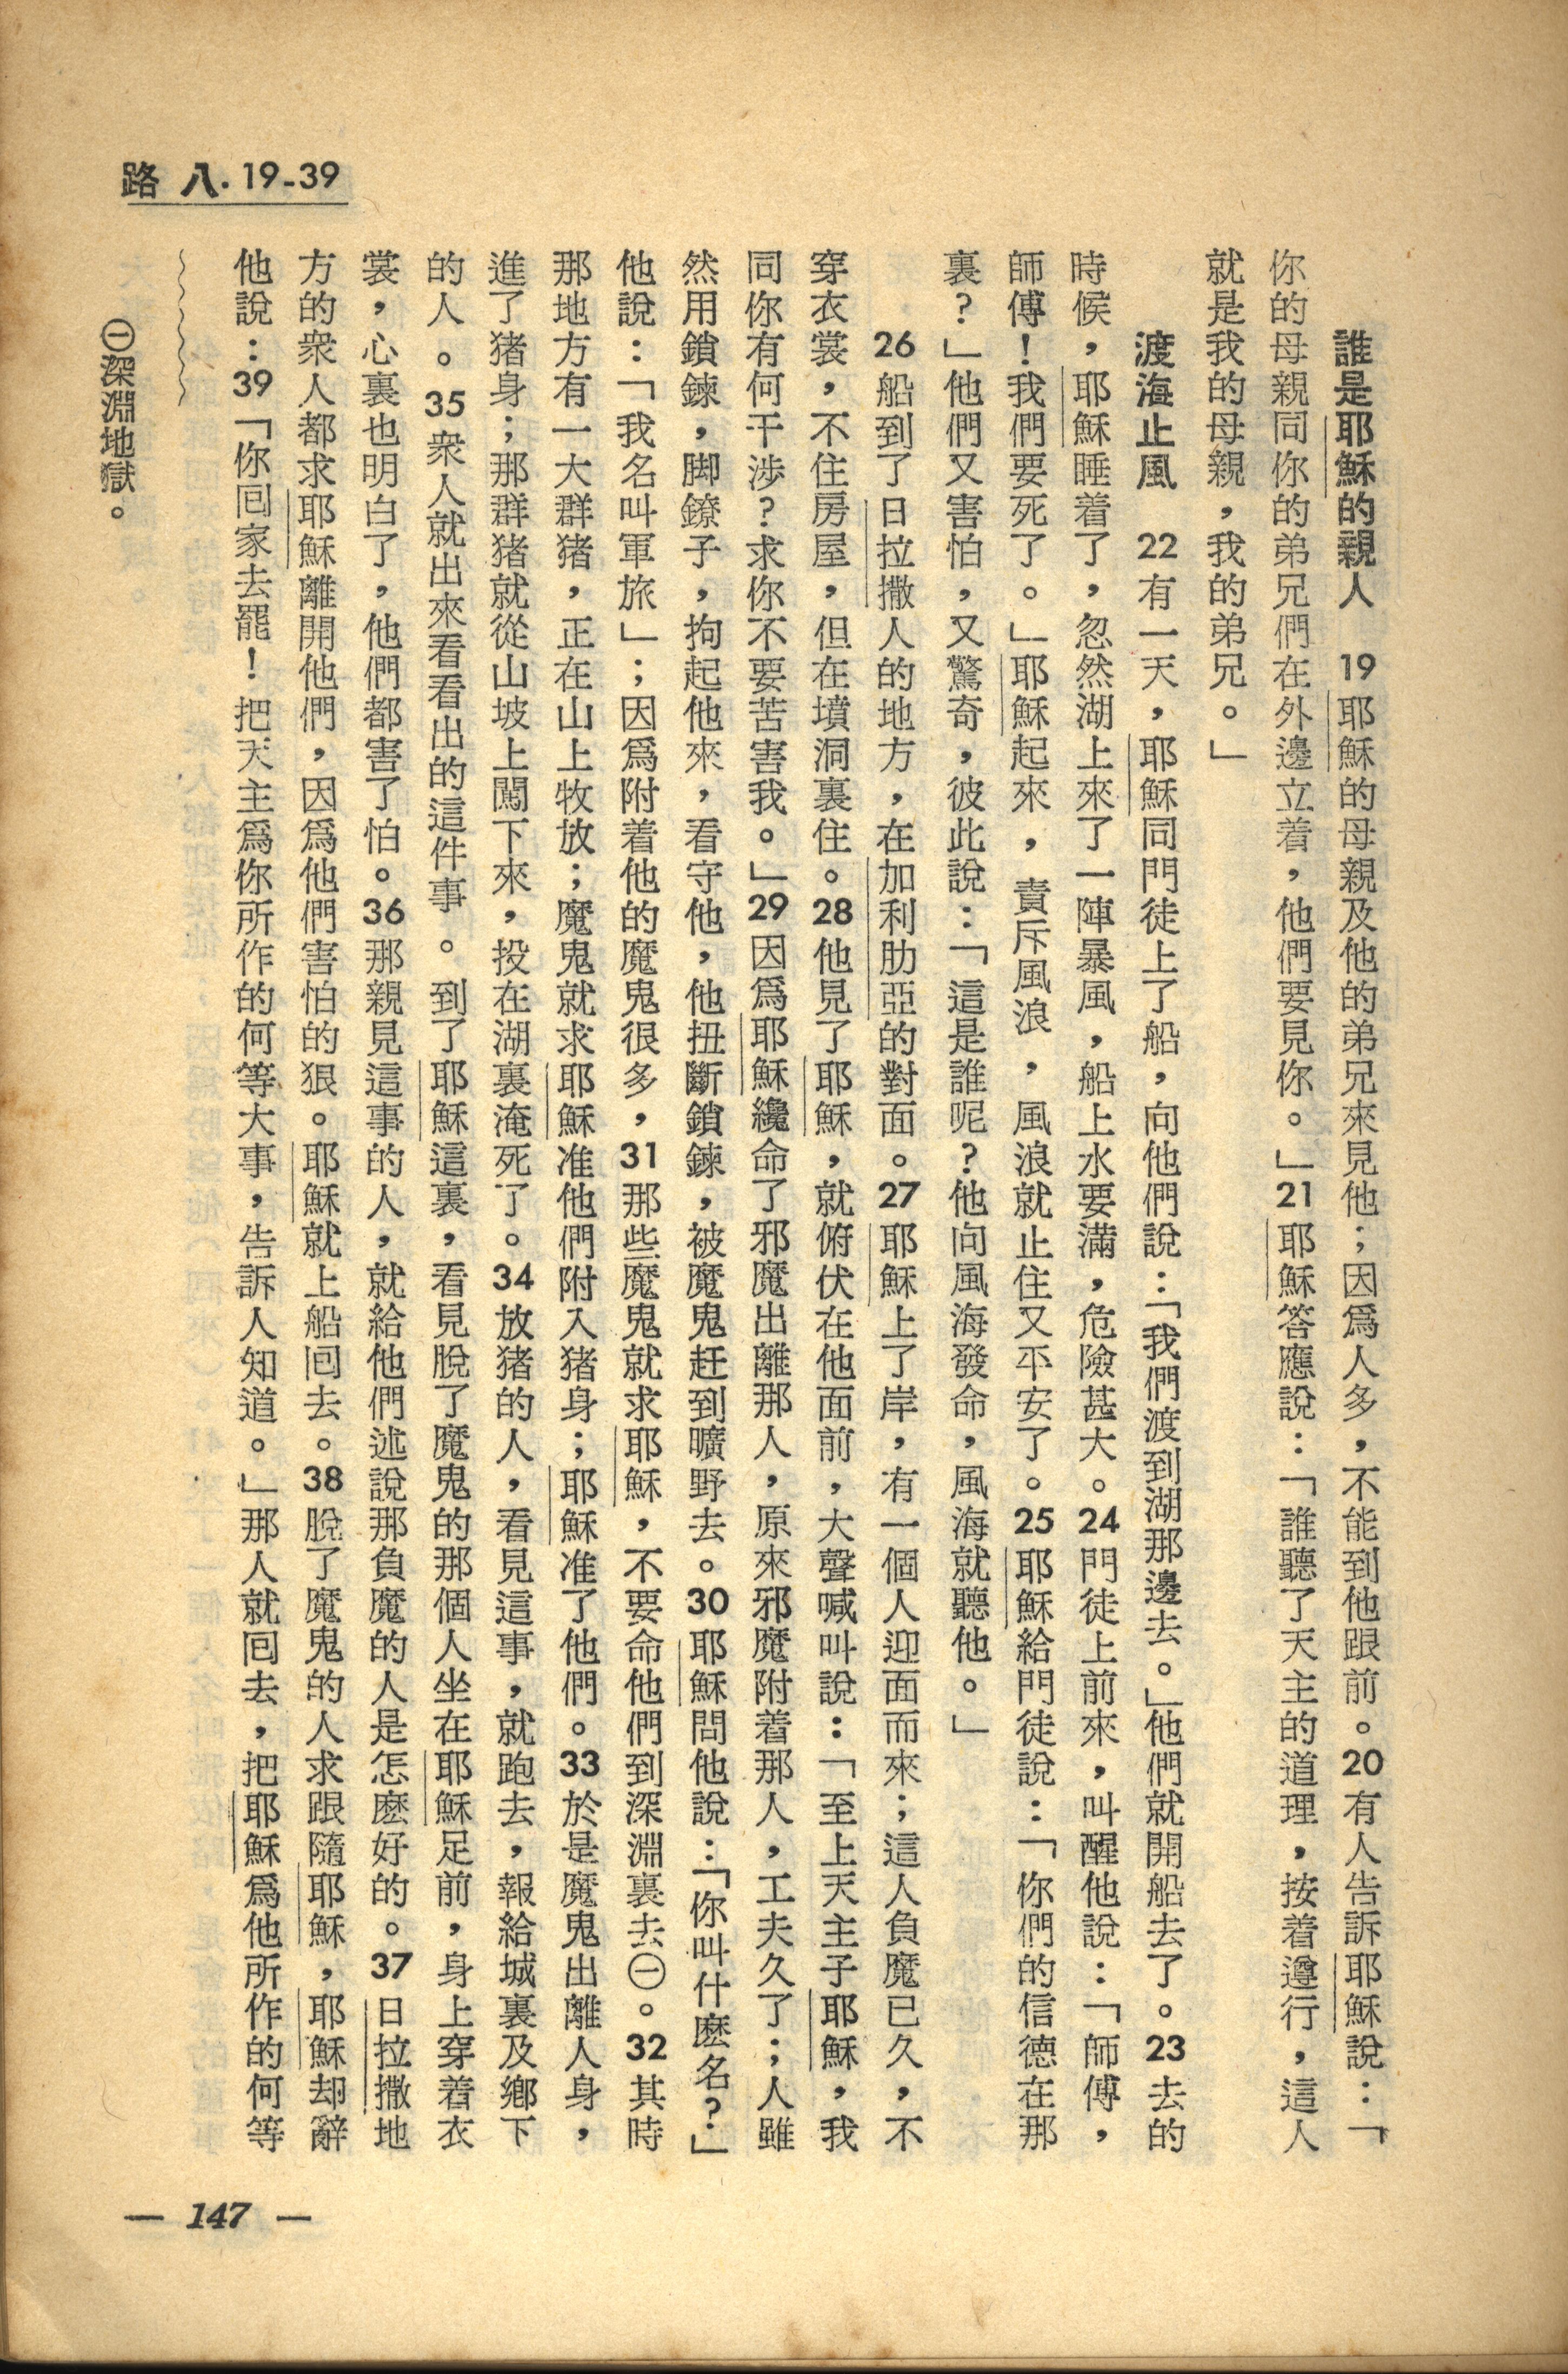 路 八. 19-39
誰是耶穌的親人　19耶穌的母親及他的弟兄來見他；因爲人多，不能到他跟前。20有人告訴耶穌說：「
你的母親同你的弟兄們在外邊立着，他們要見你。」21耶穌答應說：「誰聽了天主的道理，按着遵行，這人
就是我的母親，我的弟兄。」
渡海止風　22有一天，耶穌同門徒上了船，向他們說：「我們渡到湖那邊去。」他們就開船去了。23去的
時候，耶穌睡着了，忽然湖上來了一陣暴風，船上水要滿，危險甚大。24門徒上前來，叫醒他說：「師傅，
師傅！我們要死了。」耶穌起來，責斥風浪，風浪就止住又平安了。25耶穌給門徒說：「你們的信德在那
裏？」他們又害怕，又驚奇，彼此說：「這是誰呢？他向風海發命，風海就聽他。」
26船到了日拉撒人的地方，在加利肋亞的對面。27耶穌上了岸，有一個人迎面而來；這人負魔已久，不
穿衣裳，不住房屋，但在墳洞裏住。28他見了耶穌，就俯伏在他面前，大聲喊叫說：「至上天主子耶穌，我
同你有何干涉？求你不要苦害我。」29因爲耶穌纔命了邪魔出離那人，原來邪魔附着那人，工夫久了；人雖
然用鎖鍊，脚鐐子，拘起他來，看守他，他扭斷鎖鍊，被魔鬼赶到曠野去。30耶穌問他說：「你叫什麽名？」
他說：「我名叫軍旅」；因爲附着他的魔鬼很多，31那些魔鬼就求耶穌，不要命他們到深淵裏去㊀。32其時
那地方有一大群猪，正在山上牧放；魔鬼就求耶穌准他們附入猪身；耶穌准了他們。33於是魔鬼出離人身，
進了猪身；那群猪就從山坡上闖下來，投在湖裏淹死了。34放猪的人，看見這事，就跑去，報給城裏及鄉下
的人。35衆人就出來看看出的這件事。到了耶穌這裏，看見脫了魔鬼的那個人坐在耶穌足前，身上穿着衣
裳，心裏也明白了，他們都害了怕。36那親見這事的人，就給他們述說那負魔的人是怎麽好的。37日拉撒地
方的衆人都求耶穌離開他們，因爲他們害怕的狠。耶穌就上船囘去。38脫了魔鬼的人求跟隨耶穌，耶穌却辭
他說：39「你囘家去罷！把天主爲你所作的何等大事，告訴人知道。」那人就囘去，把耶穌爲他所作的何等
㊀深淵地獄。
— 147 —